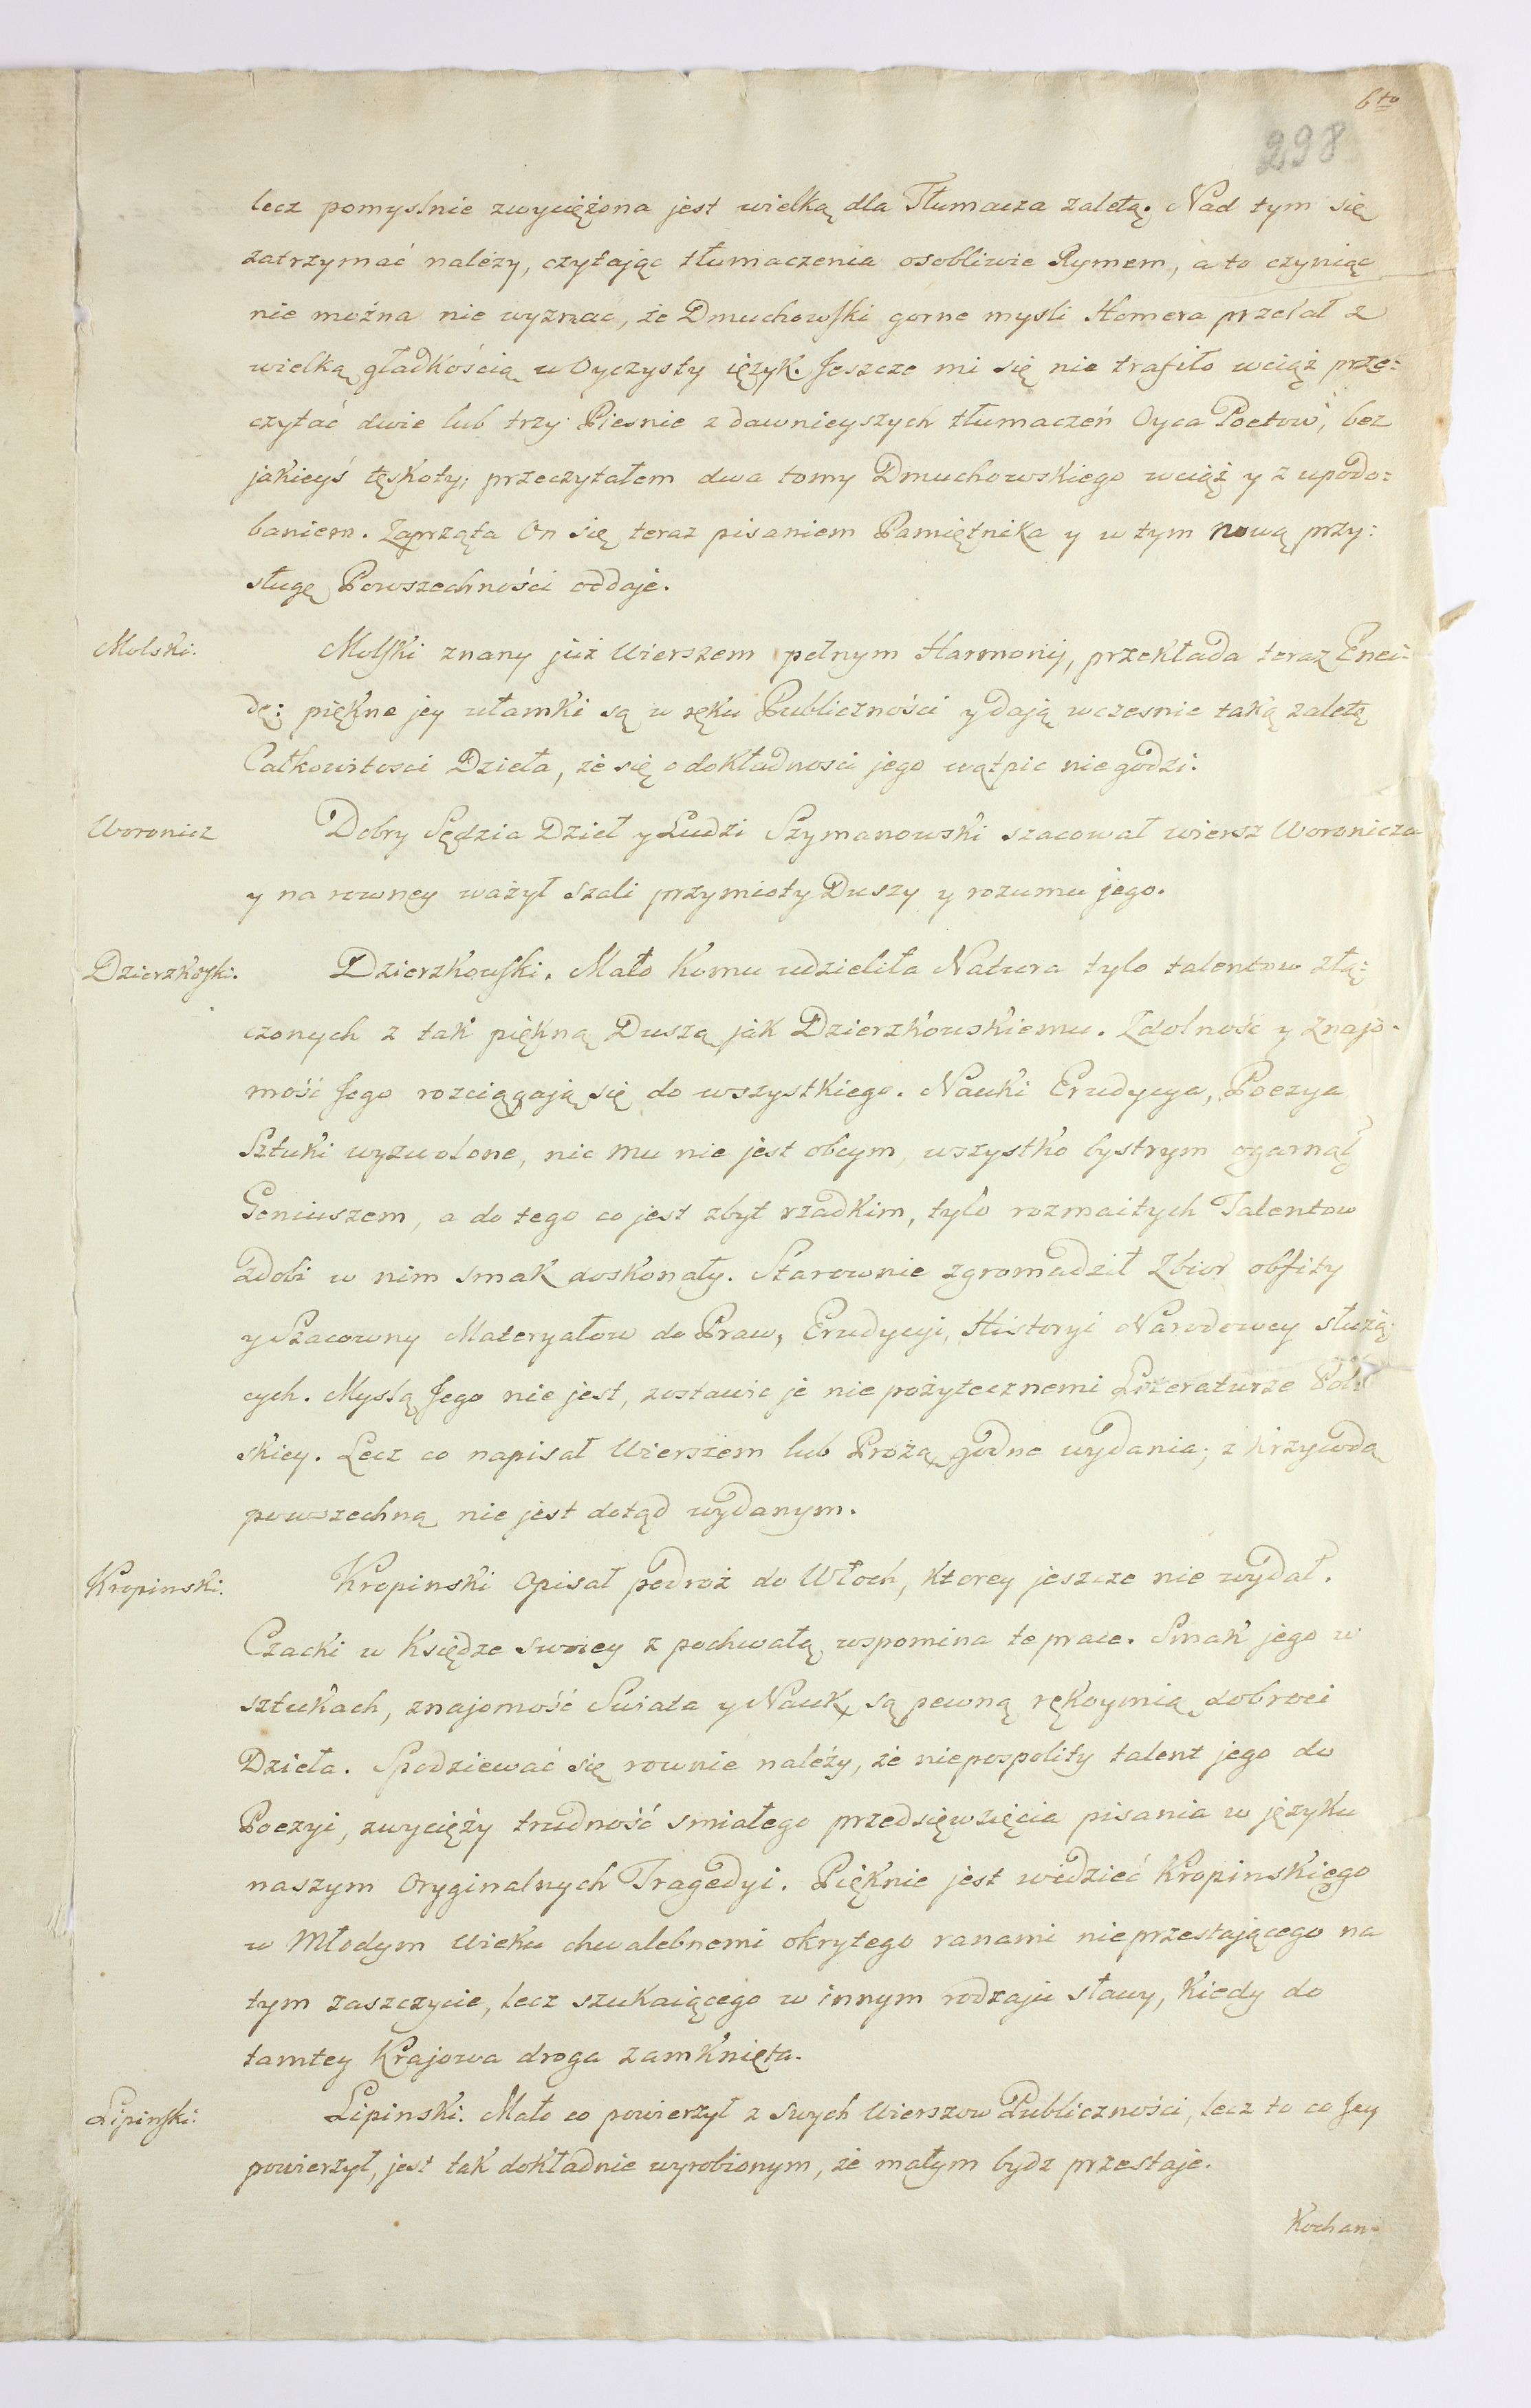 6to
298
lecz pomyslnie zwyciężona jest wielką dla Tłumacza zaletą. Nad tym się
zatrzymać należy, czytając tłumaczenia osobliwie Rymem, a to czyniąc
nie można nie wyznać, że Dmuchowski gorne mysli Homera przelał z
wielką gładkością w Oyczysty ięzyk. Jeszcze mi się nie trafiło wciąż prze:
czytać dwie lub trzy Piesnie z dawnieyszych tłumaczeń Oyca Poetow, bez
jakieyś tęskoty; przeczytałem dwa tomy Dmuchowskiego wciąż y z upodo:
baniem. Zaprząta On się teraz pisaniem Pamiętnika y w tym nową przy:
sługę Powszechności oddaje.
Molski. Molski znany już Wierszem pełnym Harmonij, przekłada teraz Enei:
dę; piękne jey ułamki są w ręku Publiczności y dają wczesnie taką zaletę
Całkowitosci Dzieła, że się o dokładnosci jego wątpic nie godzi.
Woronicz Dobry Sędzia Dzieł y Ludzi Szymanowski szacował wiersz Woronicza
y na rowney ważył szali przymioty Duszy y rozumu jego.
Dzierzkoski. Dzierzkowski. Mało komu udzieliła Natura tylo talentow złą:
czonych z tak piękną Duszą jak Dzierzkowskiemu. Zdolność y Znajo:
mość Jego rozciągają się do wszystkiego. Nauki Erudycya, Poezya
Sztuki wyzwolone, nic mu nie jest obcym, wszystko bystrym ogarnął
Geniuszem, a do tego co jest zbyt rzadkim, tylo rozmaitych Talentow
zdobi w nim smak doskonały. Starownie zgromadził Zbior obfity
y Szacowny Materyałow do Praw, Erudycyi, Historyi Narodowey służą:
cych. Myslą Jego nie jest, zostawic je nie pożytecznemi Literaturze Pol:
skiey. Lecz co napisał Wierszem lub Prozą, godne wydania; z krzywdą
powszechną nie jest dotąd wydanym.
Kropinski. Kropinski opisał podroż do Włoch, ktorey jeszcze nie wydał.
Czacki w Księdze swoiey z pochwałą wspomina te prace. Smak jego w
sztukach, znajomość Swiata y Nauk, są pewną rękoymią dobroci
Dzieła. Spodziewać się rownie należy, że niepospolity talent jego do
Poezyi, zwycięży trudność smiałego przedsięwzięcia pisania w języku
naszym Oryginalnych Tragedyi. Pięknie jest widzieć Kropinskiego
w Młodym Wieku chwalebnemi okrytego ranami nieprzestającego na
tym zaszczycie, lecz szukaiącego w innym rodzaju sławy, kiedy do
tamtey Krajowa droga zamknięta.
Lipinski. Lipinski. Mało co powierzył z swych Wierszow Publiczności, lecz to co Jey
powierzył, jest tak dokładnie wyrobionym, że małym bydz przestaje.
Kochan: